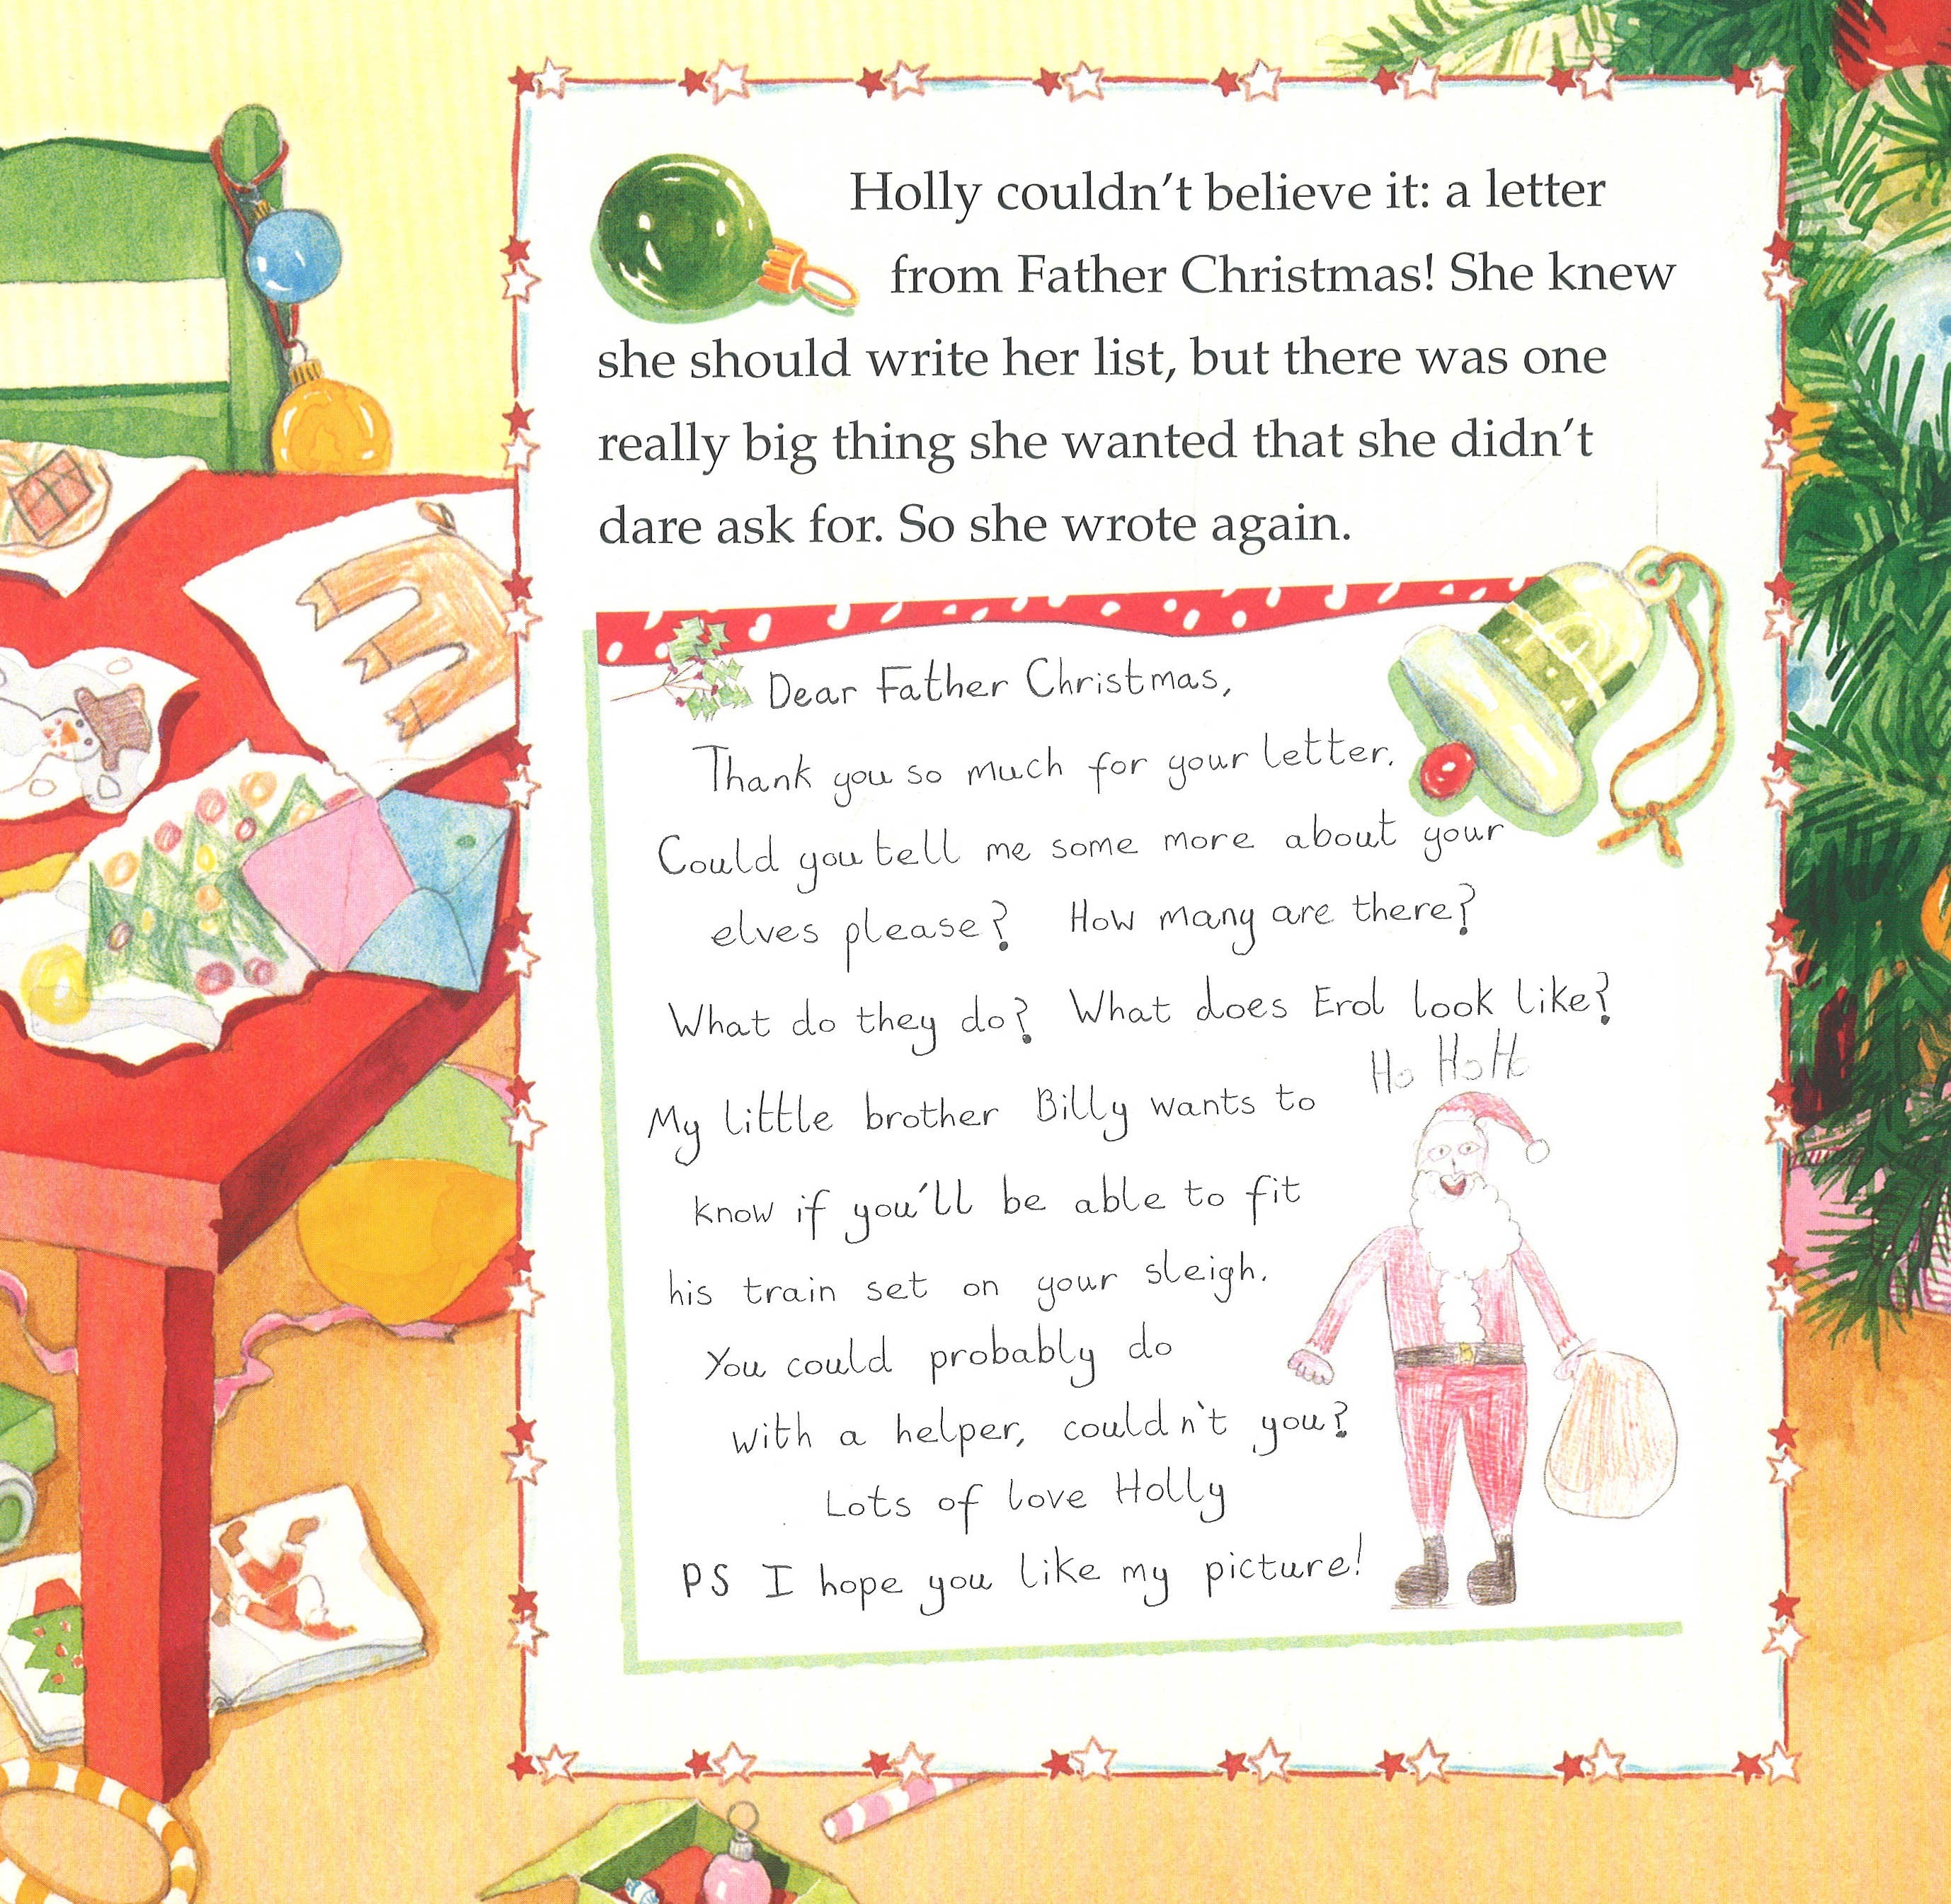 Holly couldn't believe it: a letter
from Father Christmas! She knew
she should write her list, but there was one
really big thing she wanted that she didn't
dare ask for. So she wrote again.
Dear Father Christmas,
Thank you so much for your letter.
Could you tell me some more about your
elves please? How many are there?
What do they do? What does Erol look like?
Ho Ho Ho
My little brother Billy wants to
know if you'll be able to fit
his train set on your sleigh.
You could probably do
with a helper, couldn't you?
Lots of love Holly
PS I hope you like my picture!